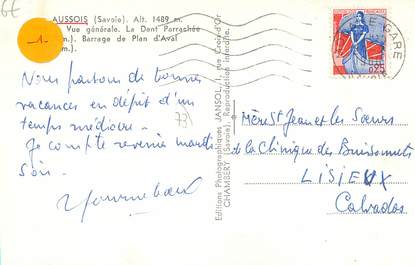 6E
AUSSOIS (Savoie). Alt. 1489 m.
Vue générale. La Dent Parrachée
m.). Barrage de Plan d'Aval
m.).
-1-
E GARE
RÉPUBLIQUE FRANÇAISE
0,25
Nous passons de bonnes
vacances en dépit d'un
temps médiocre -
Je compte revenir mardi
soir -
731
Editions Photographiques JANSOL, 1, rue Croix-d'Or
CHAMBÉRY (Savoie). Reproduction interdite.
Mère St Jean et les Sœurs
de la Clinique des Buissonnets
LISIEUX
Calvados